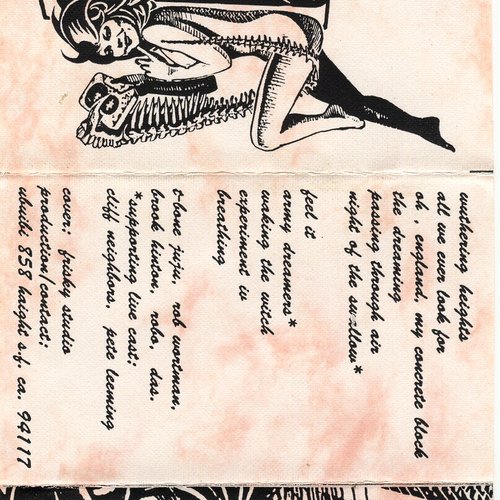 wuthering heights
all we ever look for
oh, england, my concrete block
the dreaming
passing through air
night of the swallow*
feel it
army dreamers*
waking the witch
experiment iv
breathing
t-bone juju, rob wortman,
brook hinton, robo, das.
*supporting live cast;
cliff neighbors, pete leeming
cover; frisky studio
production/contact;
ubuibi 858 haight s.f. ca. 94117